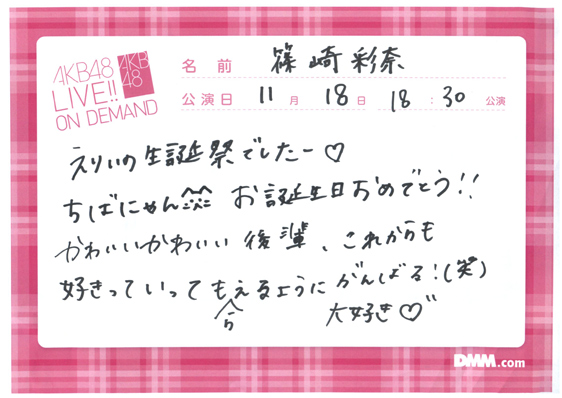 AKB48
LIVE!!
ON DEMAND
AKB
48
名前 篠崎彩奈
公演日 11月 18日 18:30 公演
えりいの生誕祭でしたー♡
ちばにゃん お誕生日おめでとう!!
かわいいかわいい後輩、これからも
好きっていってもえるようにがんばる!(笑)
ら
大好き♡
DMM.com